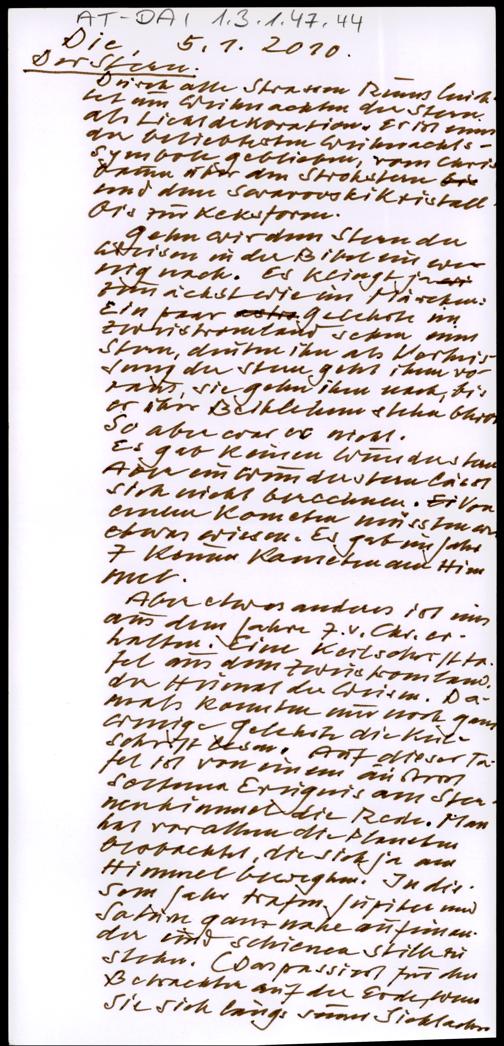 AT-DAI 1.3.1.47.44
Die, 5.1.2010.
Der Stern.
Durch alle Strassen Roms leuch-
tet um Weihnachten der Stern
als Lichtdekoration. Er ist eines
der beliebtesten Weihnachts-
symbole geblieben, vom Christ
baum über den Strohstern bis
und dem Swarovski Kristall
bis zur Keksform.
Gehn wir dem Stern der
Weisen in der Bibel ein we-
nig nach. Es klingt ja
zunächst wie im Märchen:
Ein paar Gelehrte im
Zweistromland sehen einen
Stern, deuten ihn als Verheis-
sung der Stern geht ihnen vo-
raus, sie gehn ihm nach, bis
er über Bethlehem stehn bleibt
So aber war es nicht.
Es gab keinen Wunderstern
Aber ein Wunderstern lässt
sich nicht berechnen. Von
einem Kometen müssten wir
etwas wissen. Es gab im Jahr
7 keinen Kometen am Him
mel.
Aber etwas anderes ist uns
aus dem Jahre 7.v.Chr. er-
halten. Eine Keilschriftta-
fel aus dem Zweistromland,
der Heimat der Weisen. Da-
mals konnten nur noch ganz
wenige Gelehrte die Keil-
schrift lesen. Auf dieser Ta-
fel ist von einem äusserst
seltenen Ereignis am Ster-
nenhimmel die Rede. Man
hat vor allem die Planeten
beobachtet, die sich ja am
Himmel bewegen. In die-
sem Jahr trafen Jupiter und
Saturn ganz nahe aufeinan-
der und schienen still zu
stehn. (Das passiert für den
Betrachter auf der Erde, wenn
sie sich längs seiner Sichtachse